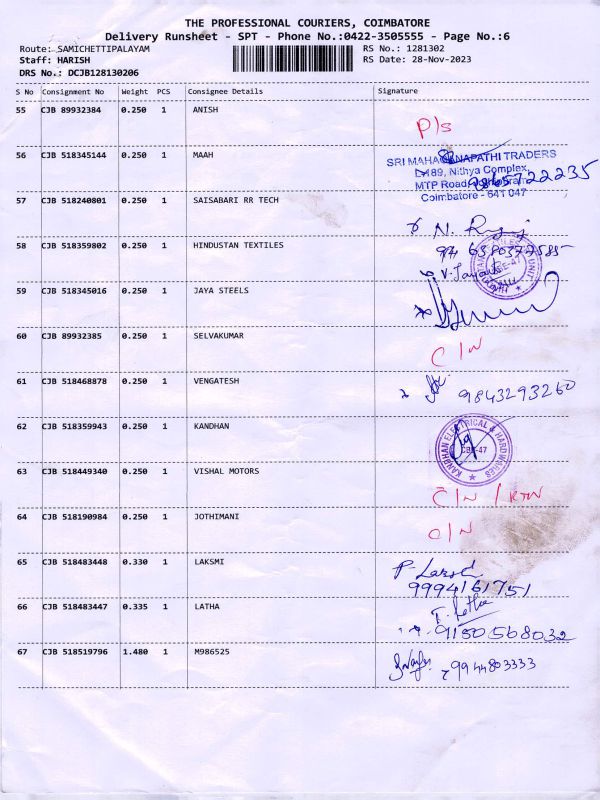 THE PROFESSIONAL COURIERS, COIMBATORE
Delivery Runsheet - SPT - Phone No.:0422-3505555 - Page No.:6
Route: SAMICHETTIPALAYAM RS No.: 1281302
Staff: HARISH RS Date: 28-Nov-2023
DRS No.: DCJB128130206
S No Consignment No Weight PCS Consignee Details Signature
55 CJB 89932384 0.250 1 ANISH
P/s
56 CJB 518345144 0.250 1 MAAH
SRI MAHAGANAPATHI TRADERS
D-189, Nithya Complex,
MTP Road,
Coimbatore - 641 047
9865722235
57 CJB 518240801 0.250 1 SAISABARI RR TECH
58 CJB 518359802 0.250 1 HINDUSTAN TEXTILES
59 CJB 518345016 0.250 1 JAYA STEELS
60 CJB 89932385 0.250 1 SELVAKUMAR
C/N
61 CJB 518468878 0.250 1 VENGATESH
9843293260
62 CJB 518359943 0.250 1 KANDHAN
KANDHAN ELECTRICAL & HARDWARES
CBE-47
63 CJB 518449340 0.250 1 VISHAL MOTORS
C/N / RTN
64 CJB 518190984 0.250 1 JOTHIMANI
C/N
65 CJB 518483448 0.330 1 LAKSMI
9994161751
66 CJB 518483447 0.335 1 LATHA
T. Latha
9150568032
67 CJB 518519796 1.480 1 M986525
9944803333